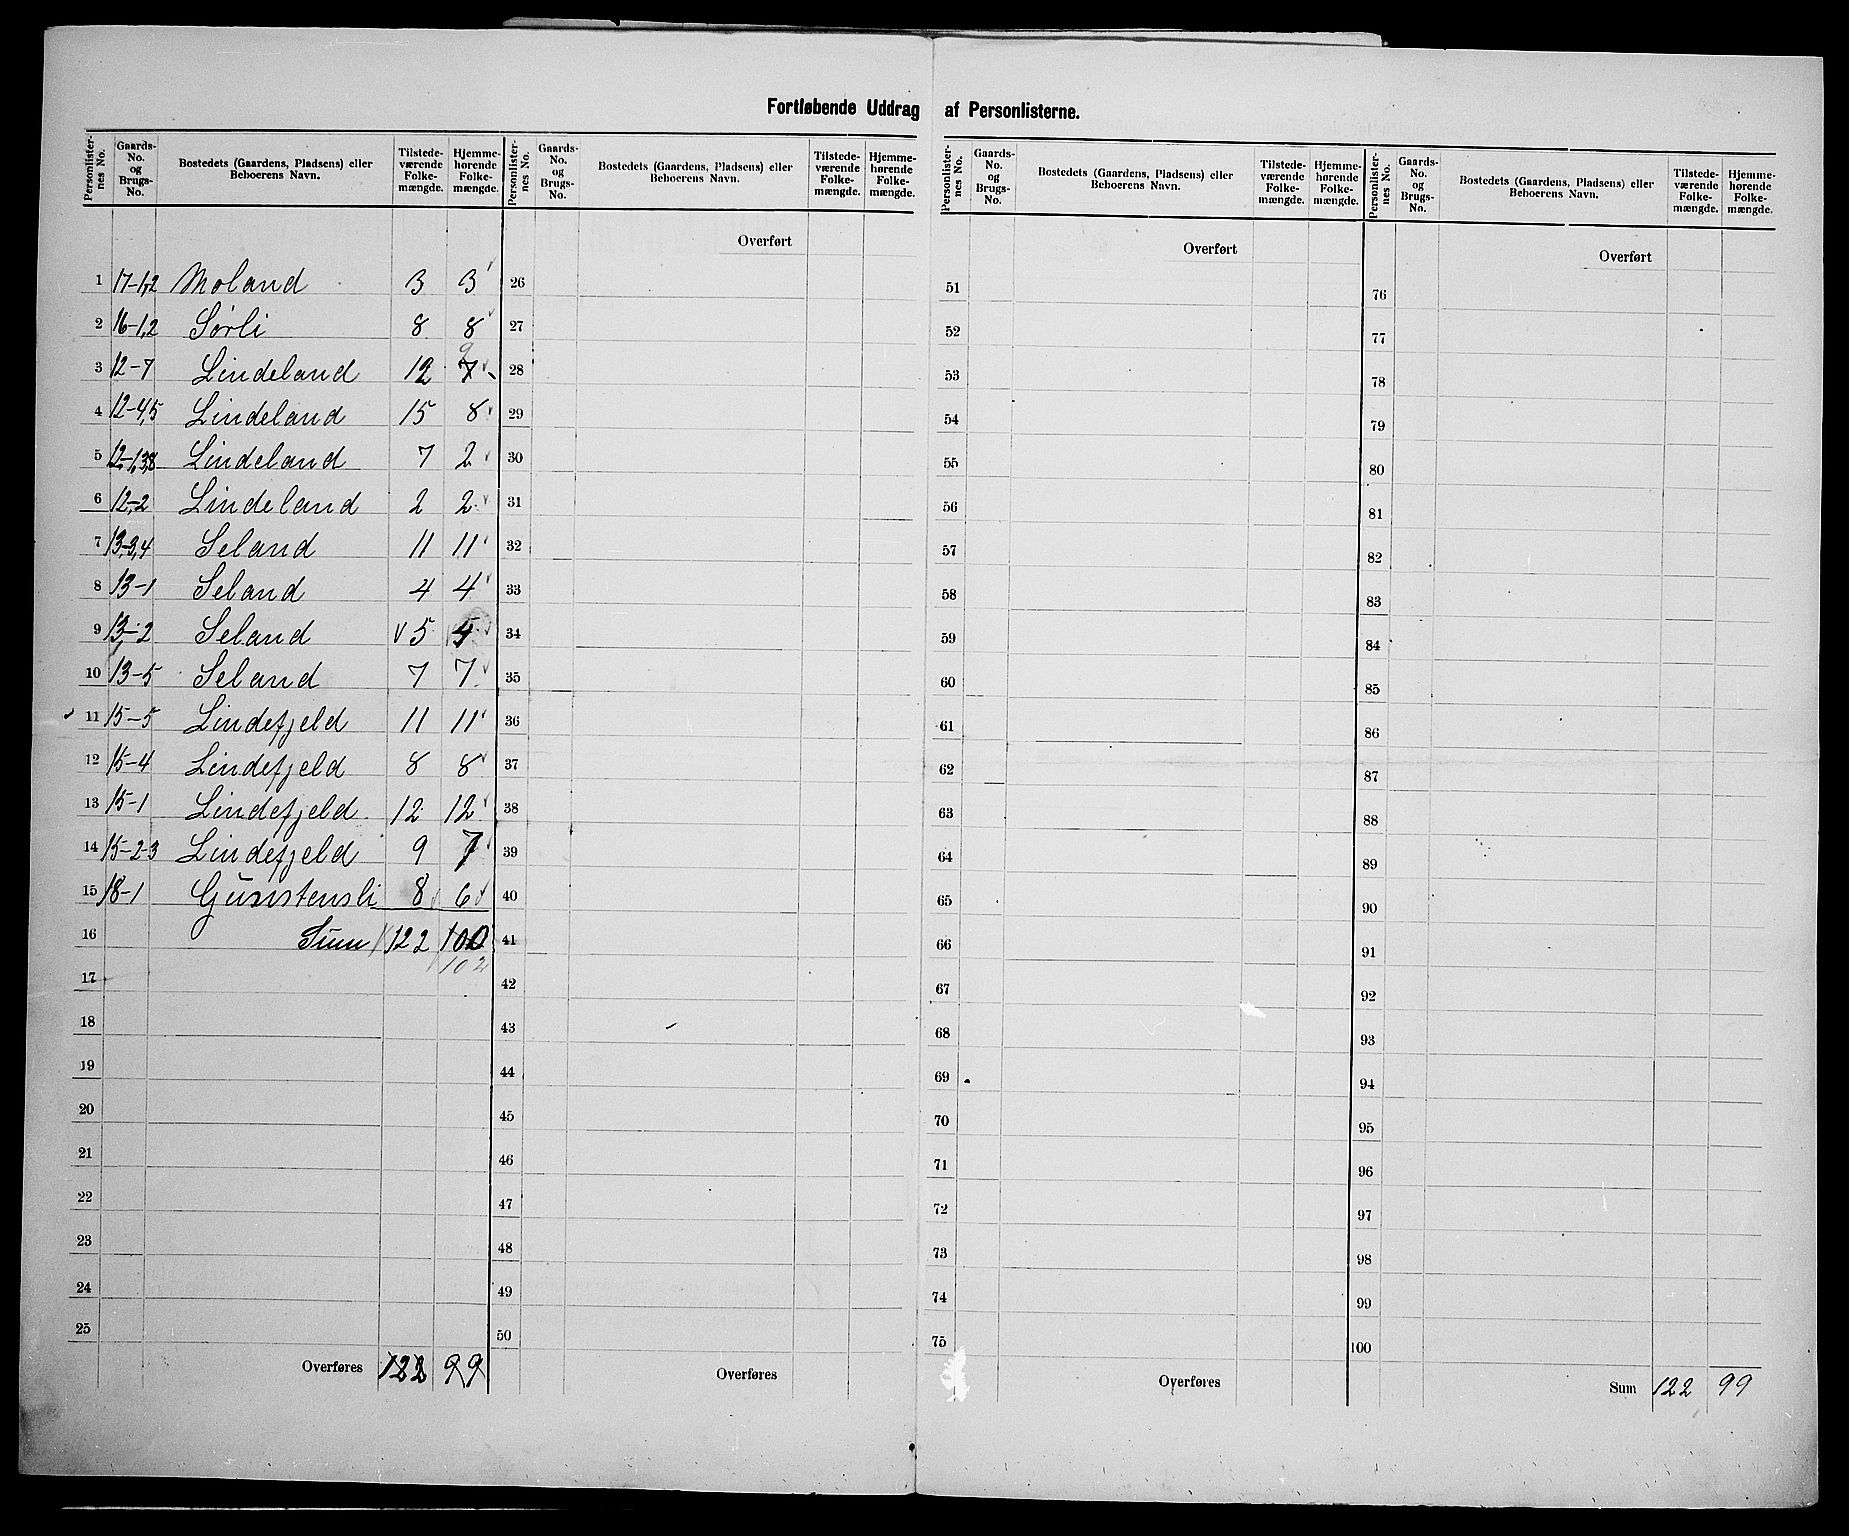 Fortløbende Uddrag af Personlisterne.
Personlister-nes No. | Gaards-No. og Brugs-No. | Bostedets (Gaardens, Pladsens) eller Beboerens Navn. | Tilstede-værende Folke-mængde. | Hjemme-hørende Folke-mængde.
1 17-1,2 Moland 3 3
2 16-1,2 Sørli 8 8
3 12-7 Lindeland 12 7 9
4 12-4,5 Lindeland 15 8
5 12-1,3,8 Lindeland 7 2
6 12-2 Lindeland 2 2
7 13-3,4 Seland 11 11
8 13-1 Seland 4 4
9 13-2 Seland 5 5
10 13-5 Seland 7 7
11 15-5 Lindefjeld 11 11
12 15-4 Lindefjeld 8 8
13 15-1 Lindefjeld 12 12
14 15-2-3 Lindefjeld 9 7
15 18-1 Gunstensli 8 6
16 Sum 122 100
17 102
18
19
20
21
22
23
24
25
Overføres 122 99
Personlister-nes No. | Gaards-No. og Brugs-No. | Bostedets (Gaardens, Pladsens) eller Beboerens Navn. | Tilstede-værende Folke-mængde. | Hjemme-hørende Folke-mængde.
Overført
26
27
28
29
30
31
32
33
34
35
36
37
38
39
40
41
42
43
44
45
46
47
48
49
50
Overføres
Personlister-nes No. | Gaards-No. og Brugs-No. | Bostedets (Gaardens, Pladsens) eller Beboerens Navn. | Tilstede-værende Folke-mængde. | Hjemme-hørende Folke-mængde.
Overført
51
52
53
54
55
56
57
58
59
60
61
62
63
64
65
66
67
68
69
70
71
72
73
74
75
Overføres
Personlister-nes No. | Gaards-No. og Brugs-No. | Bostedets (Gaardens, Pladsens) eller Beboerens Navn. | Tilstede-værende Folke-mængde. | Hjemme-hørende Folke-mængde.
Overført
76
77
78
79
80
81
82
83
84
85
86
87
88
89
90
91
92
93
94
95
96
97
98
99
100
Sum 122 99